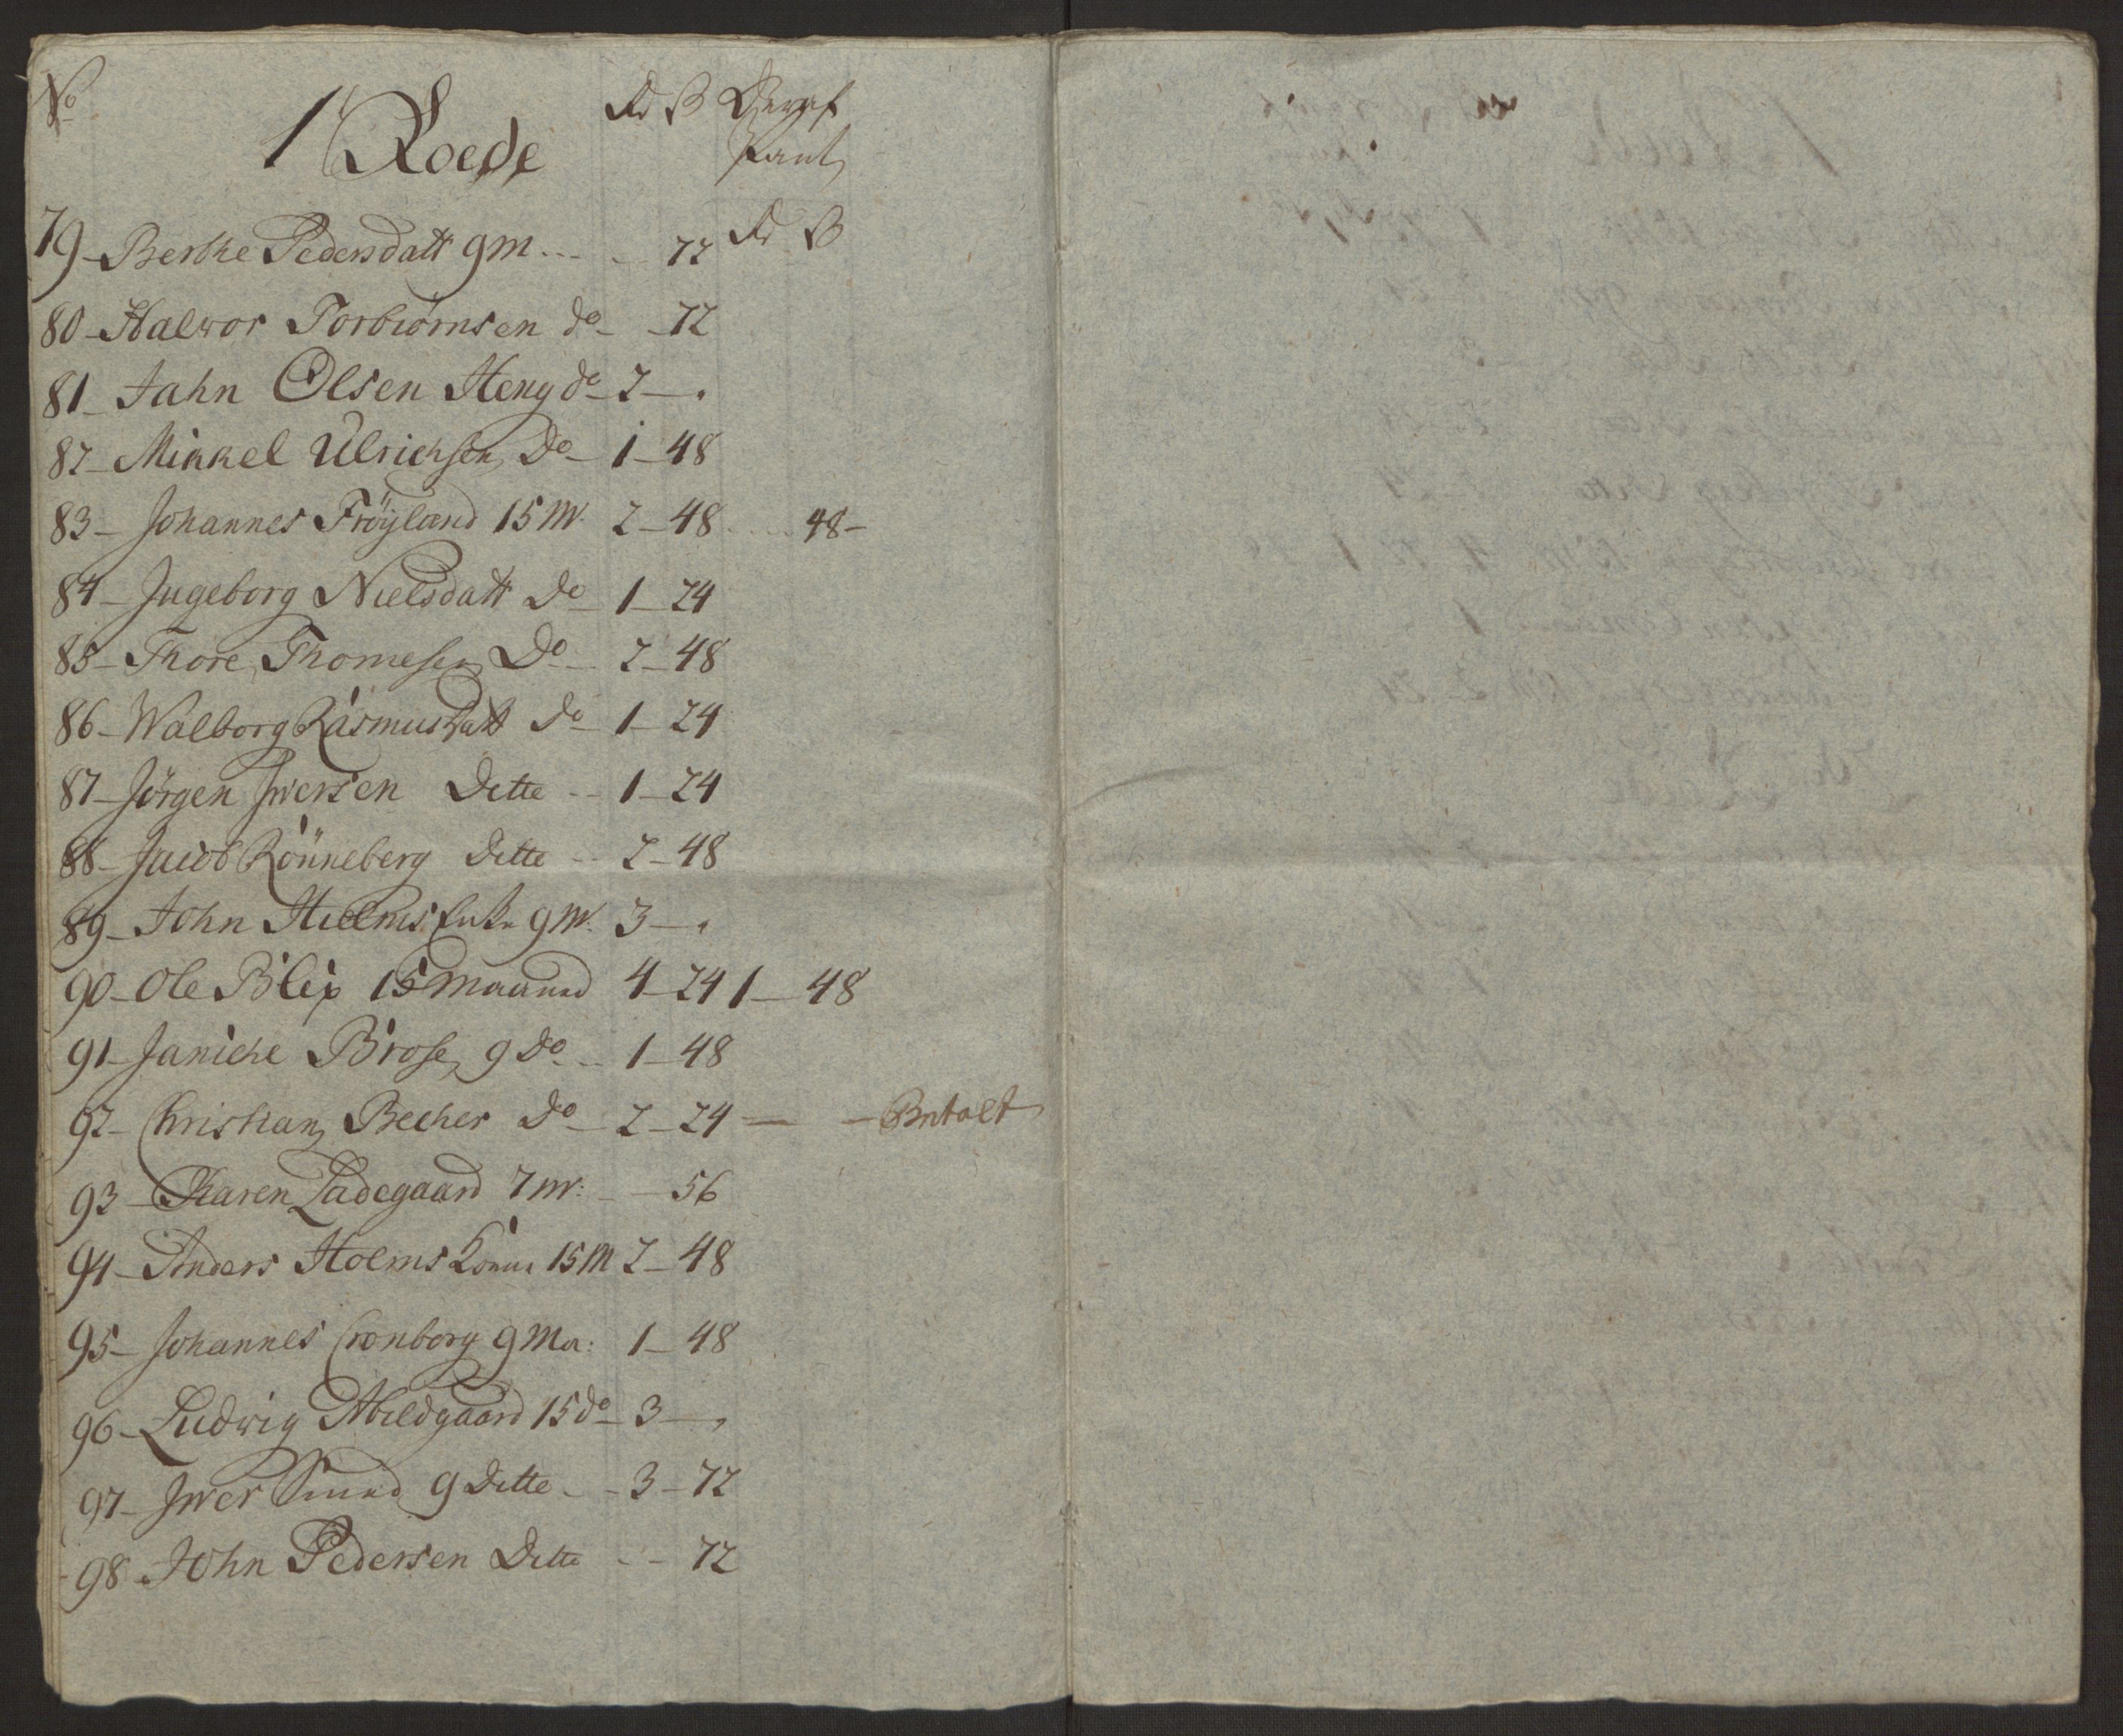 No
1 Roede
Rd ß Deraf
Pant
Rd ß
79 - Berthe Pedersdatt 9 m - - 72
80 - Halvor Torbiørnsen do - - 72
81 - Jahn Olsen Heng do - 2 - "
82 - Mikkel Ulrichsen Do - 1 - 48
83 - Johannes Fröyland 15 M. 2 - 48 - 48 -
84 - Ingeborg Nielsdatt Do - 1 - 24
85 - Thore Thomesen Do - 2 - 48
86 - Walborg Rasmusdatt do - 1 - 24
87 - Jörgen Iversen Ditto - 1 - 24
88 - Jacob Rönneberg ditto - 2 - 48
89 - John Hielms Enke 9 M. 3 - "
90 - Ole Blix 15 Maaned 4 - 24 1 - 48
91 - Janiche Brose 9 Do - 1 - 48
92 - Christian Becher Do - 2 - 24 - - Betalt
93 - Karen Ladegaard 7 M: - 56
94 - Anders Holms Kone 15 M 2 - 48
95 - Johannes Cronborg 9 Ma: 1 - 48
96 - Ludvig Abildgaard 15 do - 3 - "
97 - Iver Sund 9 Ditto - - 3 - 72
98 - John Pedersen Ditto - - 72